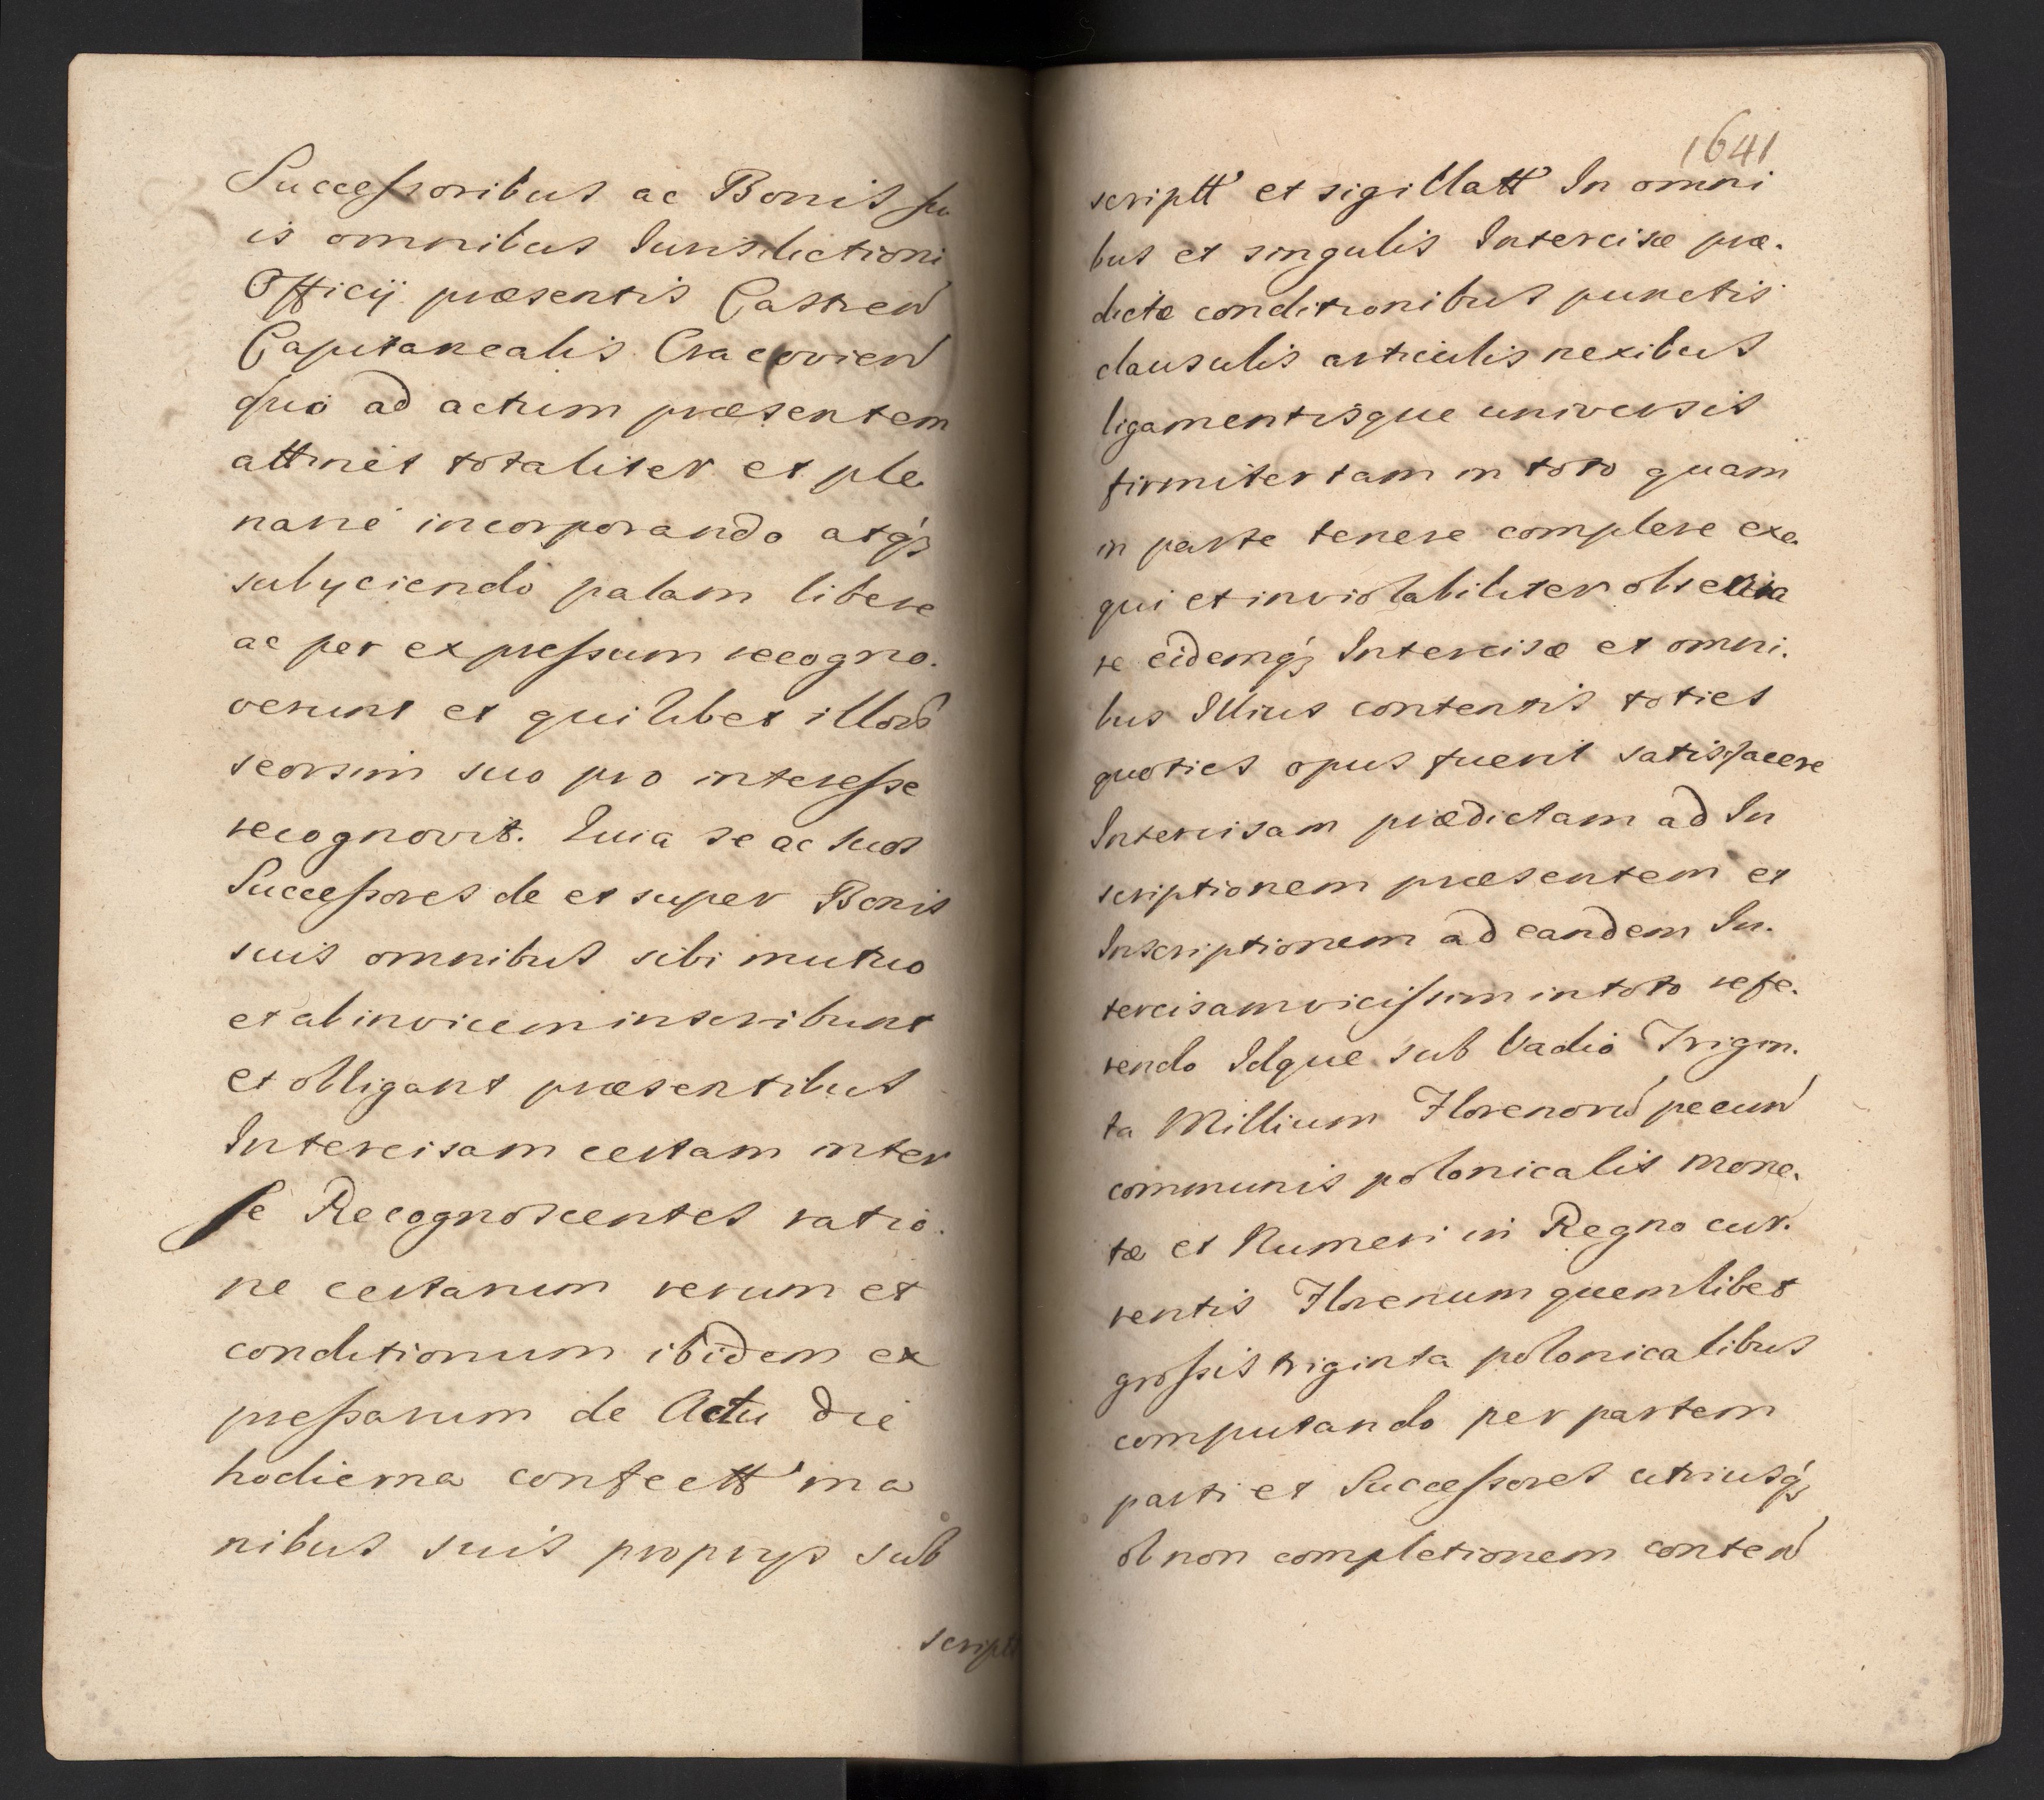 Successoribus ac Bonis su
is omnibus Iurisdictioni
Officij præsentis Castren
Capitanealis Cracovien
quo ad actum præsentem
attinet totaliter et ple
narie incorporando atq₃
subyciendo palam libere
ac per expressum recogno.
verunt et quilibet illorū
seorsim suo pro interesse
recognovit. Quia se ac suos
Successores de et super Bonis
suis omnibus sibi mutuo
et ab invicem inscribunt
et obligant præsentibus
Intercisam certam inter
se Recognoscentes ratio.
ne certarum rerum et
conditionum ibidem ex
pressarum de Actu die
hodierna confectt' ma
nibus suis propryis sub
scriptt
1641
scriptt' et sigillatt' In omni
bus et singulis Intercisæ præ.
dictæ conditionibus punctis
clausulis articulis nexibus
ligamentisque universis
firmiter tam in toto quam
in parte tenere complere exe
qui et inviolabiliter observa
re eidemq₃ Intercisæ et omni.
bus Illius contentis toties
quoties opus fuerit satisfacere
Intercisam prædictam ad In
scriptionem præsentem et
Inscriptionem ad eandem In.
tercisam vicissim in toto refe.
rendo Idque sub Vadio Trigin.
ta Millium Florenorū pecun
communis polonicalis mone.
tæ et Numeri in Regno cur.
rentis Florenum quemlibet
grossis triginta polonicalibus
computando per partem
parti et Successores utriusq₃
ob non completionem conten